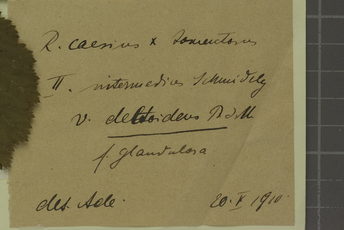 R. caesius x tomentosus
II. intermedius Schmidely
v. deltoideus P.J.M
f. glandulosa
det. Ade. 20. V 1910.